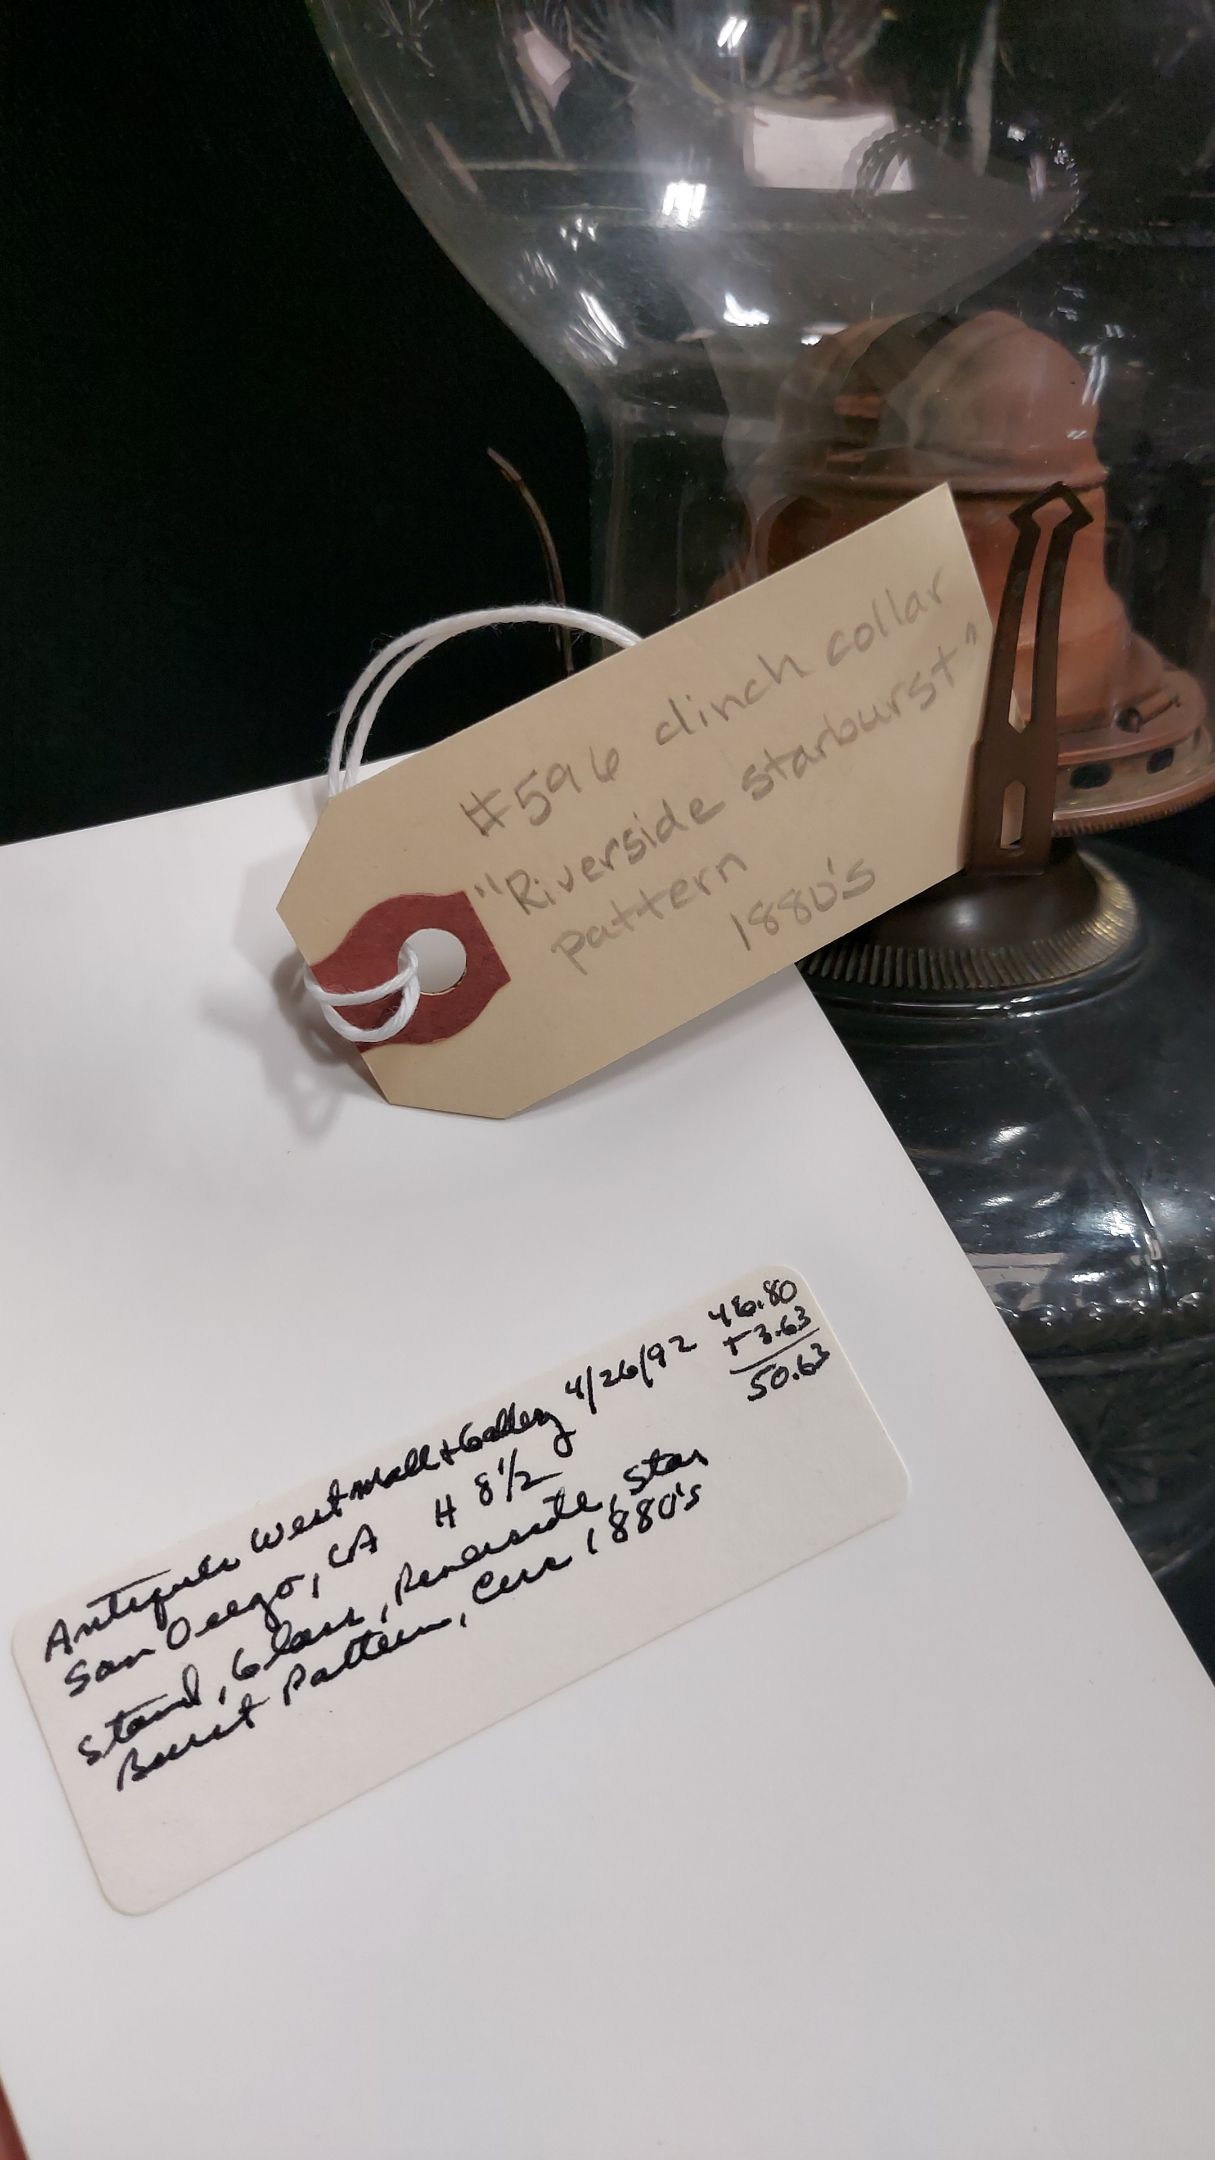 #596 clinch collar
"Riverside starburst"
pattern
1880's
Antiques West Mall + Gallery 4/26/92
46.80
+ 3.63
50.63
San Diego, CA H 8 1/2
Stand, Glass, Riverside, Star
Burst Pattern, Circ 1880's